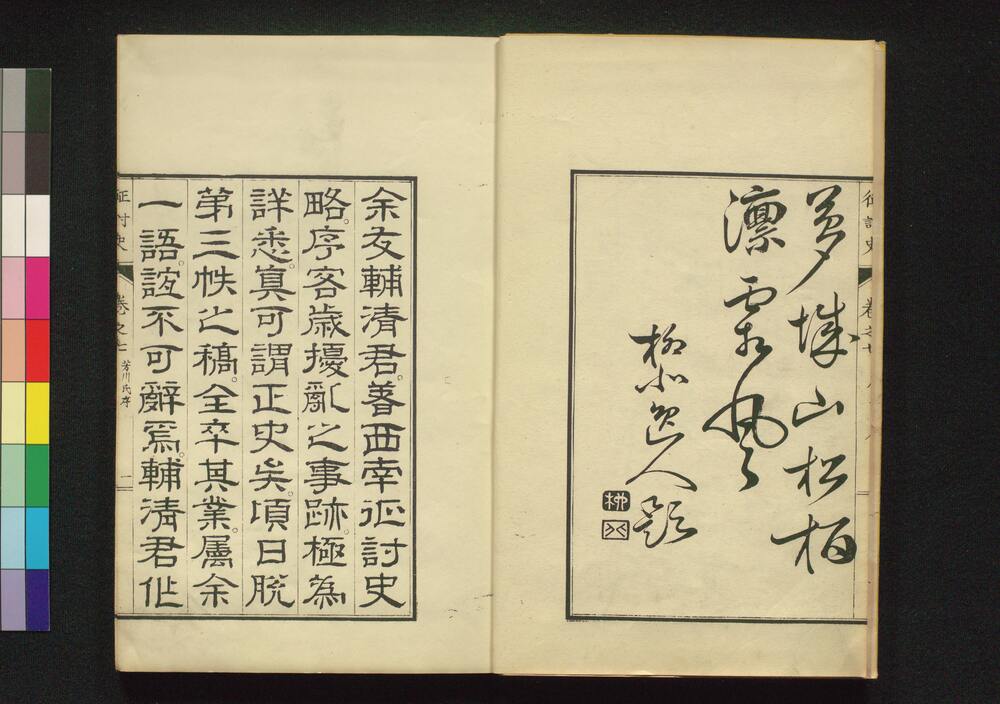 征討史 卷之七
城山松柏
凜風
柳北逸人題
余友輔清君。著西南征討史
略。序客歳擾亂之事跡。極為
詳悉。真可謂正史矣。頃日脱
第三帙之稿。全卒其業。属余
一語。誼不可辭焉。輔清君作
征討史 卷之七 芳川氏序 一